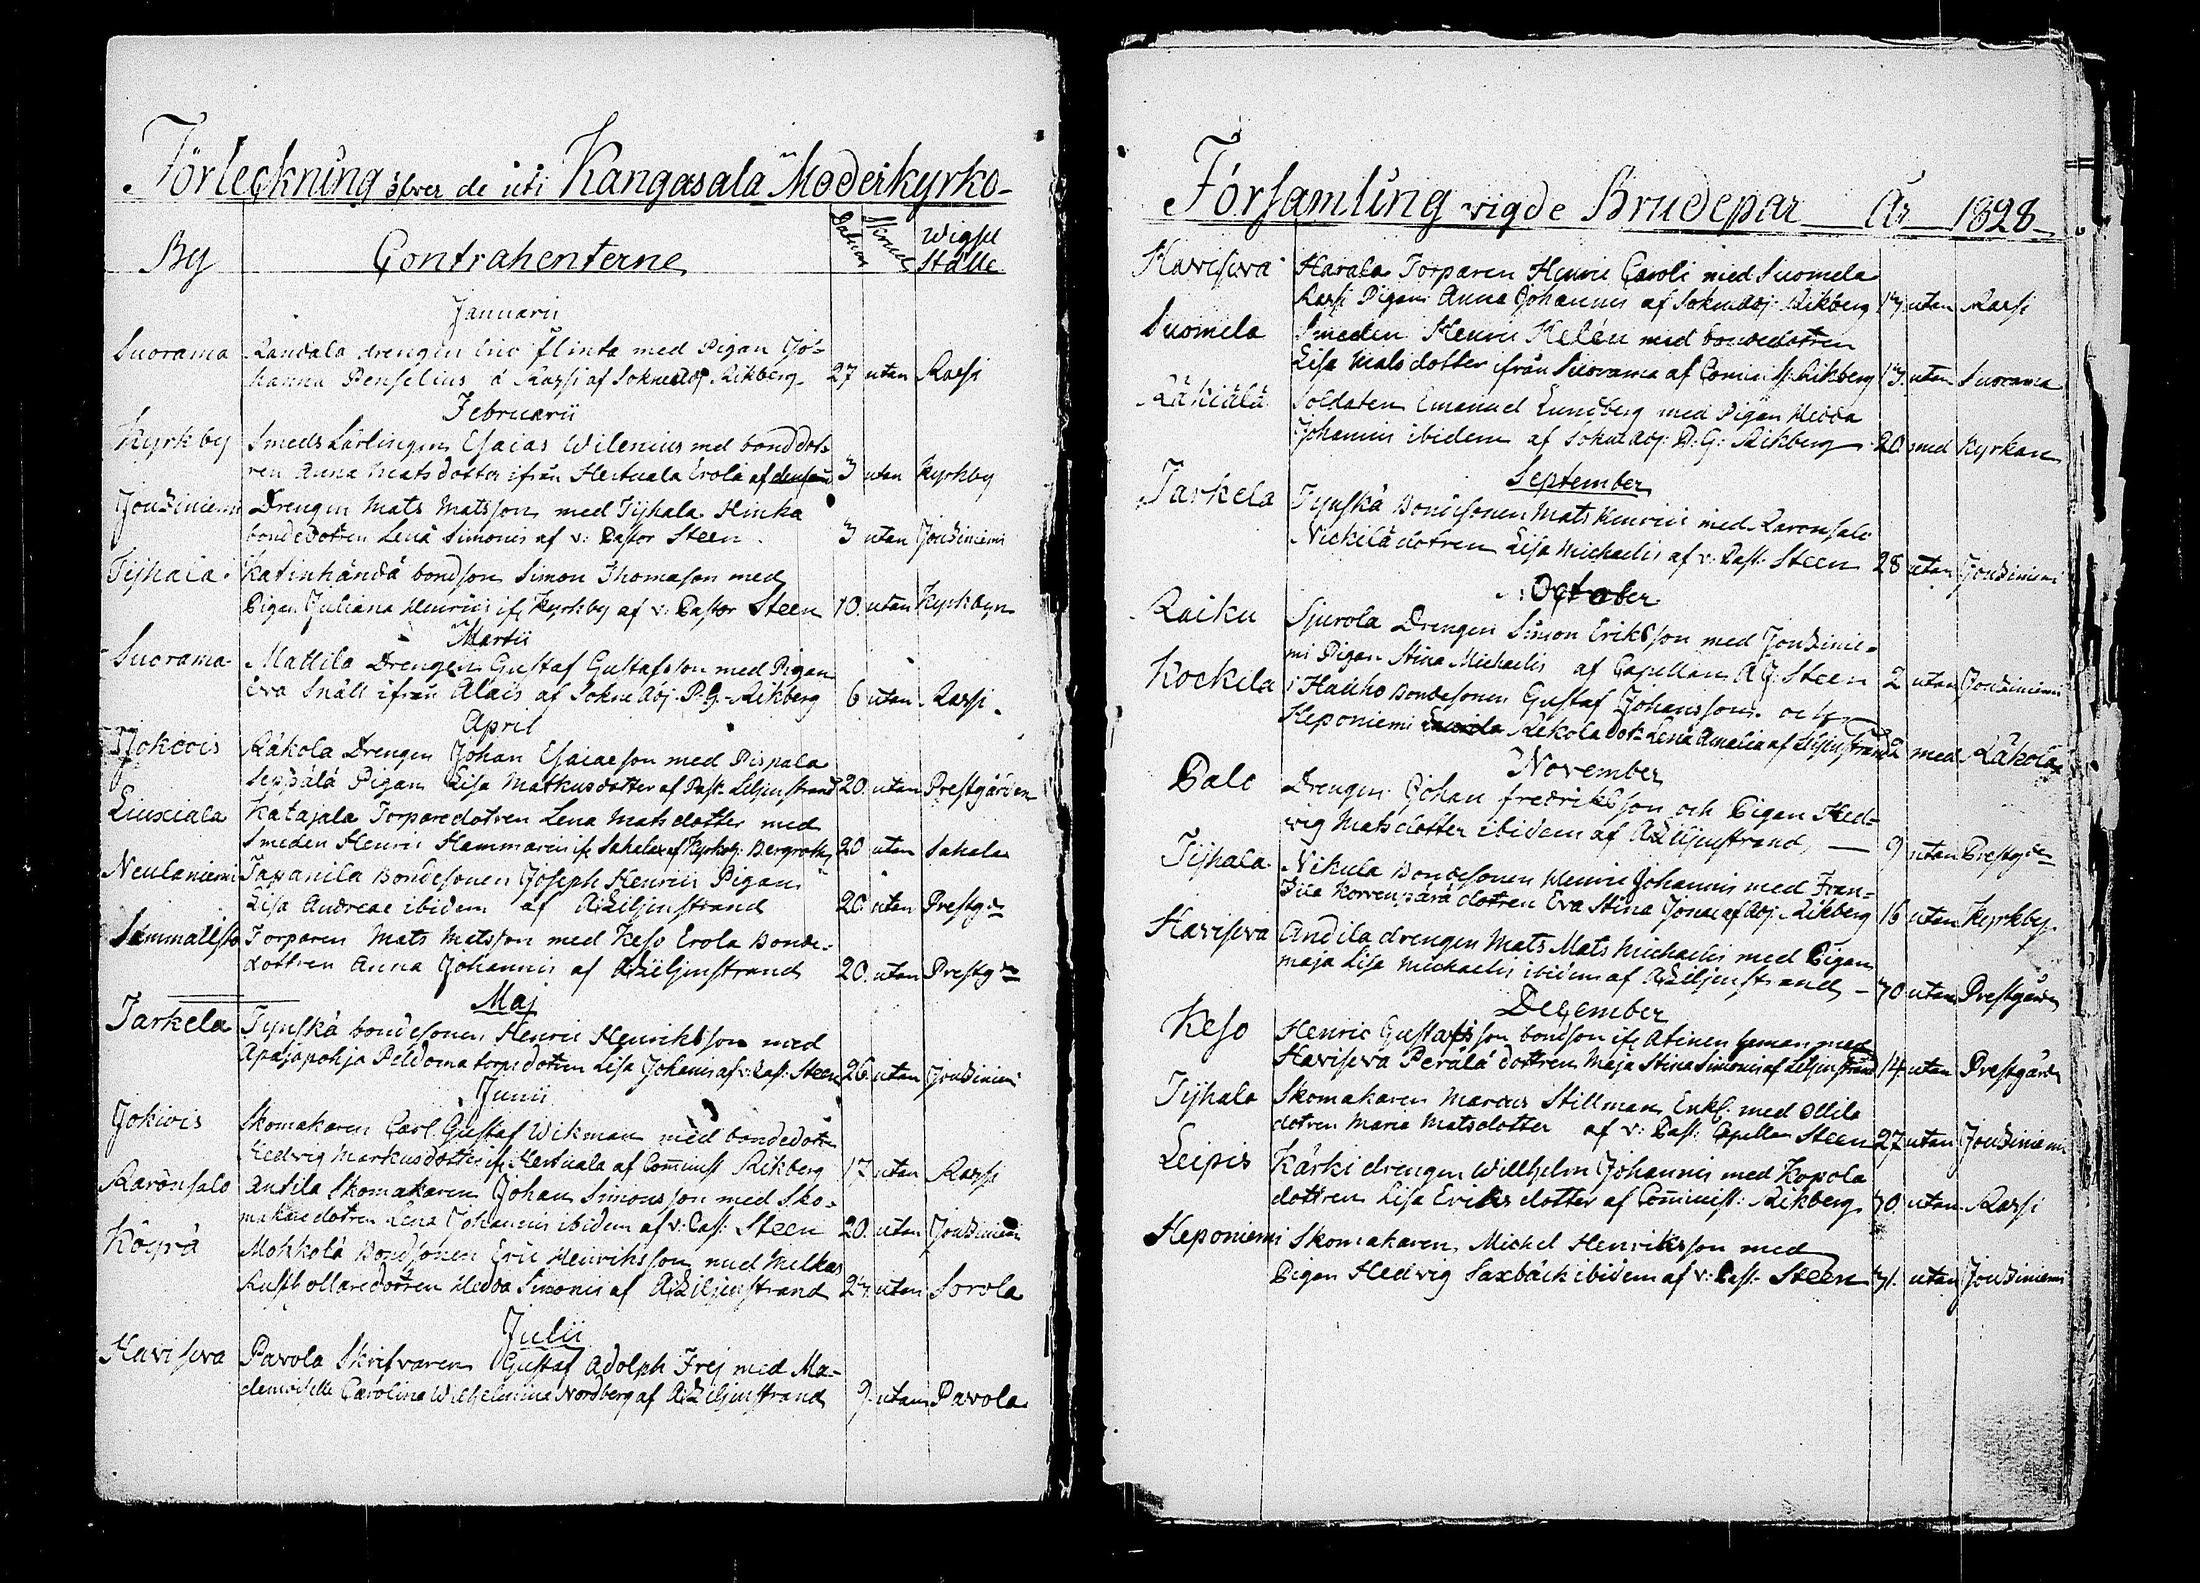 Förteckning öfver de uti Kangasala Moderkyrko-
By Contrahenterne Datum Skrud Wigsel Ställe
Januarii
Suorama Randala drengen Eric Flinta med Pigan Jo-
hanna Penselius å Rassi af Sokne Adj Rikberg 27 utan Rassi
Februarii
Kyrkby Smeds Lärlingen Esaias Wilenius med bonddot-
ren Anna Matsdotter ifrån Hertuala Erola af densam 3 utan Kyrkby
Jouziniemi Drengen Mats Matsson med Tijhala Hinka
bondedotren Lena Simonis af v: Pastor Steen 3 utan Jouziniemi
Tijhala Katinhändä bondson Simon Thomason med
Pigan Juliana Henrici if Kyrkby af v: Pastor Steen 10. utan Kyrkbyn
Martii
Suorama Mattila Drengen Gustaf Gustafsson med Pigan
Eva Snäll ifrån Alais af Sokne Adj. P. G. Rikberg 6 utan Rassi.
April
Jokiois Räkola Drengen Johan Esaiaeson med Pispala
Seppälä Pigan Lisa Matkusdotter af Past. Liljenstrand 20 utan Prestgården
Liuxiala Katajala Torparedotren Lena Matsdotter med
Smeden Henric Hammaren if Sahala af Kyrkoh: Bergroth 20 utan Sahala
Neulaniemi Tapanila Bondesonen Joseph Henrici Pigan
Lisa Andreae ibidem af A Liljenstrand 20. utan Prestg:n
Sammallsto Torparen Mats Matsson med Keso Erola Bonde-
dottren Anna Johannis af A Liljenstrand 20. utan Prestg:n
Maj
Tarkela Tynskä bondesonen Henric Henriksson med
Apajapohja Peldoma torpedotren Lisa Johannis af v: Past: Steen 26 utan Jouziniemi
Junii
Jokiois Skomakaren Carl Gustaf Wikman med bondedotr
Hedvig Markusdotter if Hertuala af Cominist Rikberg 17 utan Rassi
Raronsalo Antila Skomakaren Johan Simonsson med Sko-
makaredotren Lena Johannis ibidem af v: Past: Steen 20. utan Jouziniemi
Köyrä Mokkola Bondsonen Eric Henriksson med Melkas
Rusthollaredotren Hedda Simonis af A Liljenstrand 24. utan Sorola
Julii
Havisева Pavola Skrifvaren Gustaf Adolph Frej med Ma-
demoiselle Carolina Wilhelmina Nordberg af A Liljenstrand 9. utan Pavola
Församling vigde Brudepar År 1828
Haviseva Harala Torparen Henric Caroli med Suomela
Rassi Pigan Anna Johannis af Sokneadj: Rikberg 13 utan Rassi
Suomela Smeden Henric Helén med bondedotren
Lisa Matsdotter ifrån Suorama af Comin: Rikberg 13. utan Suorama
Räkiälä Soldaten Emanuel Lundberg med Pigan Hedda
Johannis ibidem af Sokne Adj: P. G: Rikberg 20 med Kyrkan
September
Tarkela Tynskä Bondesonen Mats Henrici med Raronsalo
Nickilä dotren Lisa Michaelis af v: Past: Steen 28 utan Jouziniemi
October
Raiku Sjurola Drengen Simon Eriksson med Jouzinie-
mi Pigan Stina Michaelis af Capellan A J: Steen 2 utan Jouziniemi
Kockila i Hauho Bondesonen Gustaf Johansson och
Heponiemi Rekola dot: Lena Amalia af Liljenstrand 2 med Räkola
November
Palo Drengen Johan Fredriksson och Pigan Hed-
vig Matsdotter ibidem af A Liljenstrand — 9 utan Prestg:n
Tijhala Nikula Bondesonen Henric Johannis med Fran-
sila Korvenpärä dotren Eva Stina Jonae af Adj: Rikberg 16 utan Kyrkby.
Haviseva Andila drengen Mats Mats Michaelis med Pigan
Maja Lisa Michaelis ibidem af A Liljenstrand — 30 utan Prestgård
December
Keso Henric Gustafsson bondson if Atinen med
Haviseva Perälä dottren Maja Stina Simonis af Liljenstrand 14 utan Prestgård
Tijhala Skomakaren Marcus Stillman Enkl. med Ollila
dotren Maria Matsdotter af v: Past: Capellan Steen 27 utan Jouziniemi
Leipis Kärki drengen Willhelm Johannis med Kopola
dottren Lisa Ericsdotter af Cominist: Rikberg 30 utan Rassi
Heponiemi Skomakaren Michel Henriksson med
Pigan Hedvig Saxbäck ibidem af v: Past: Steen 31. utan Jouziniemi